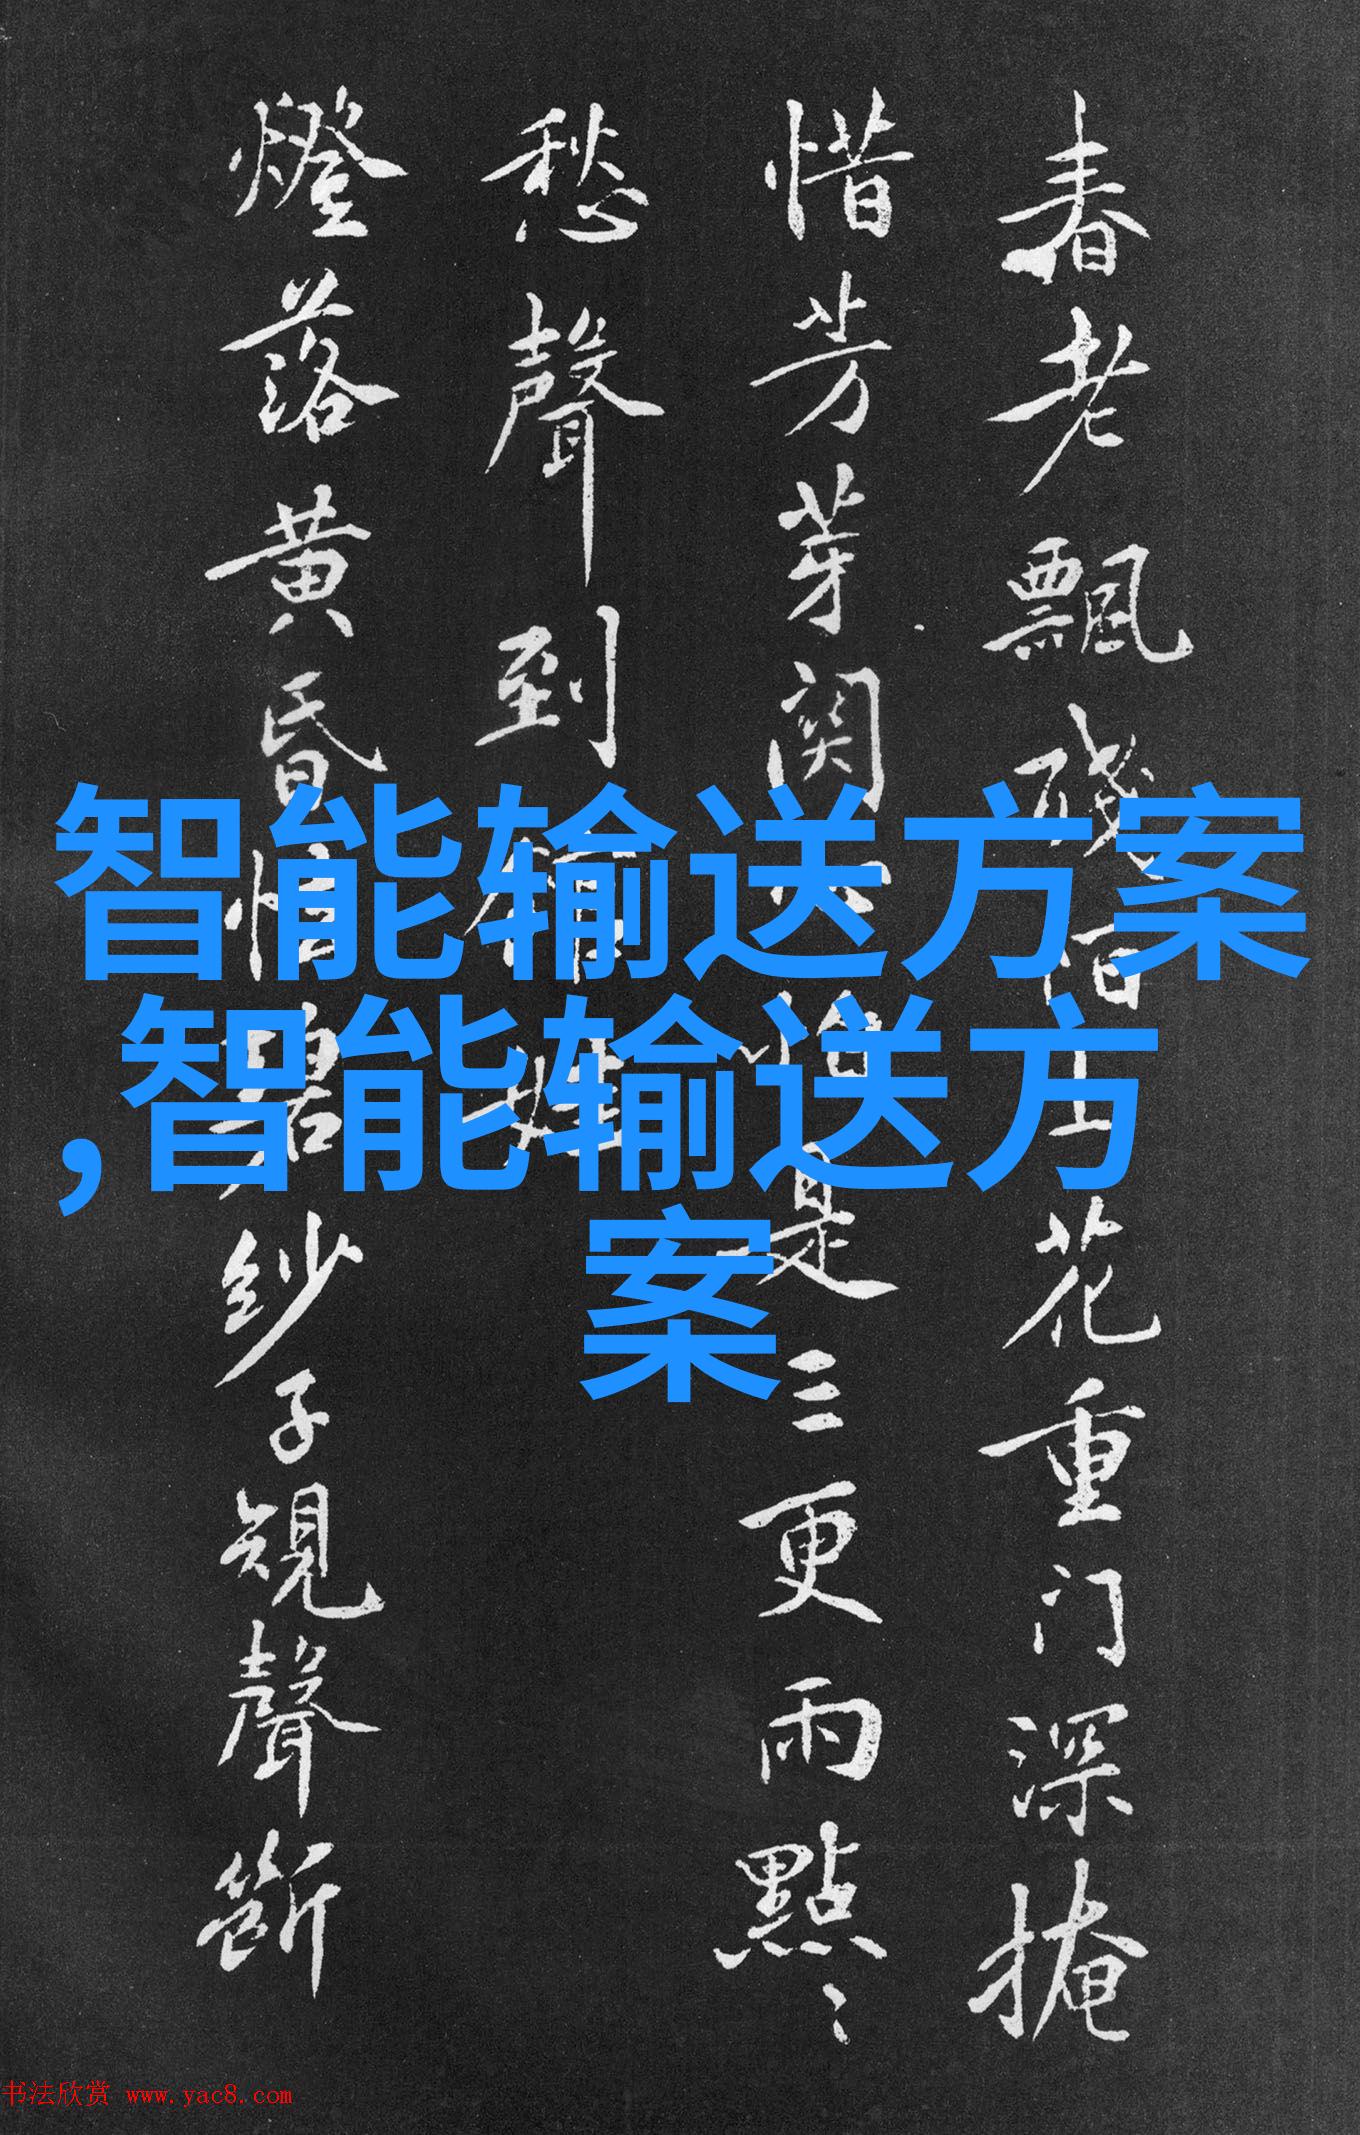 春老飄殘花重门深掩
惜芳芽関是三更雨點〻
愁聲到
燈落黄昏碧紗子規聲斷
智能输送方案
,智能输送方
案
书法欣赏 www.yac8.com